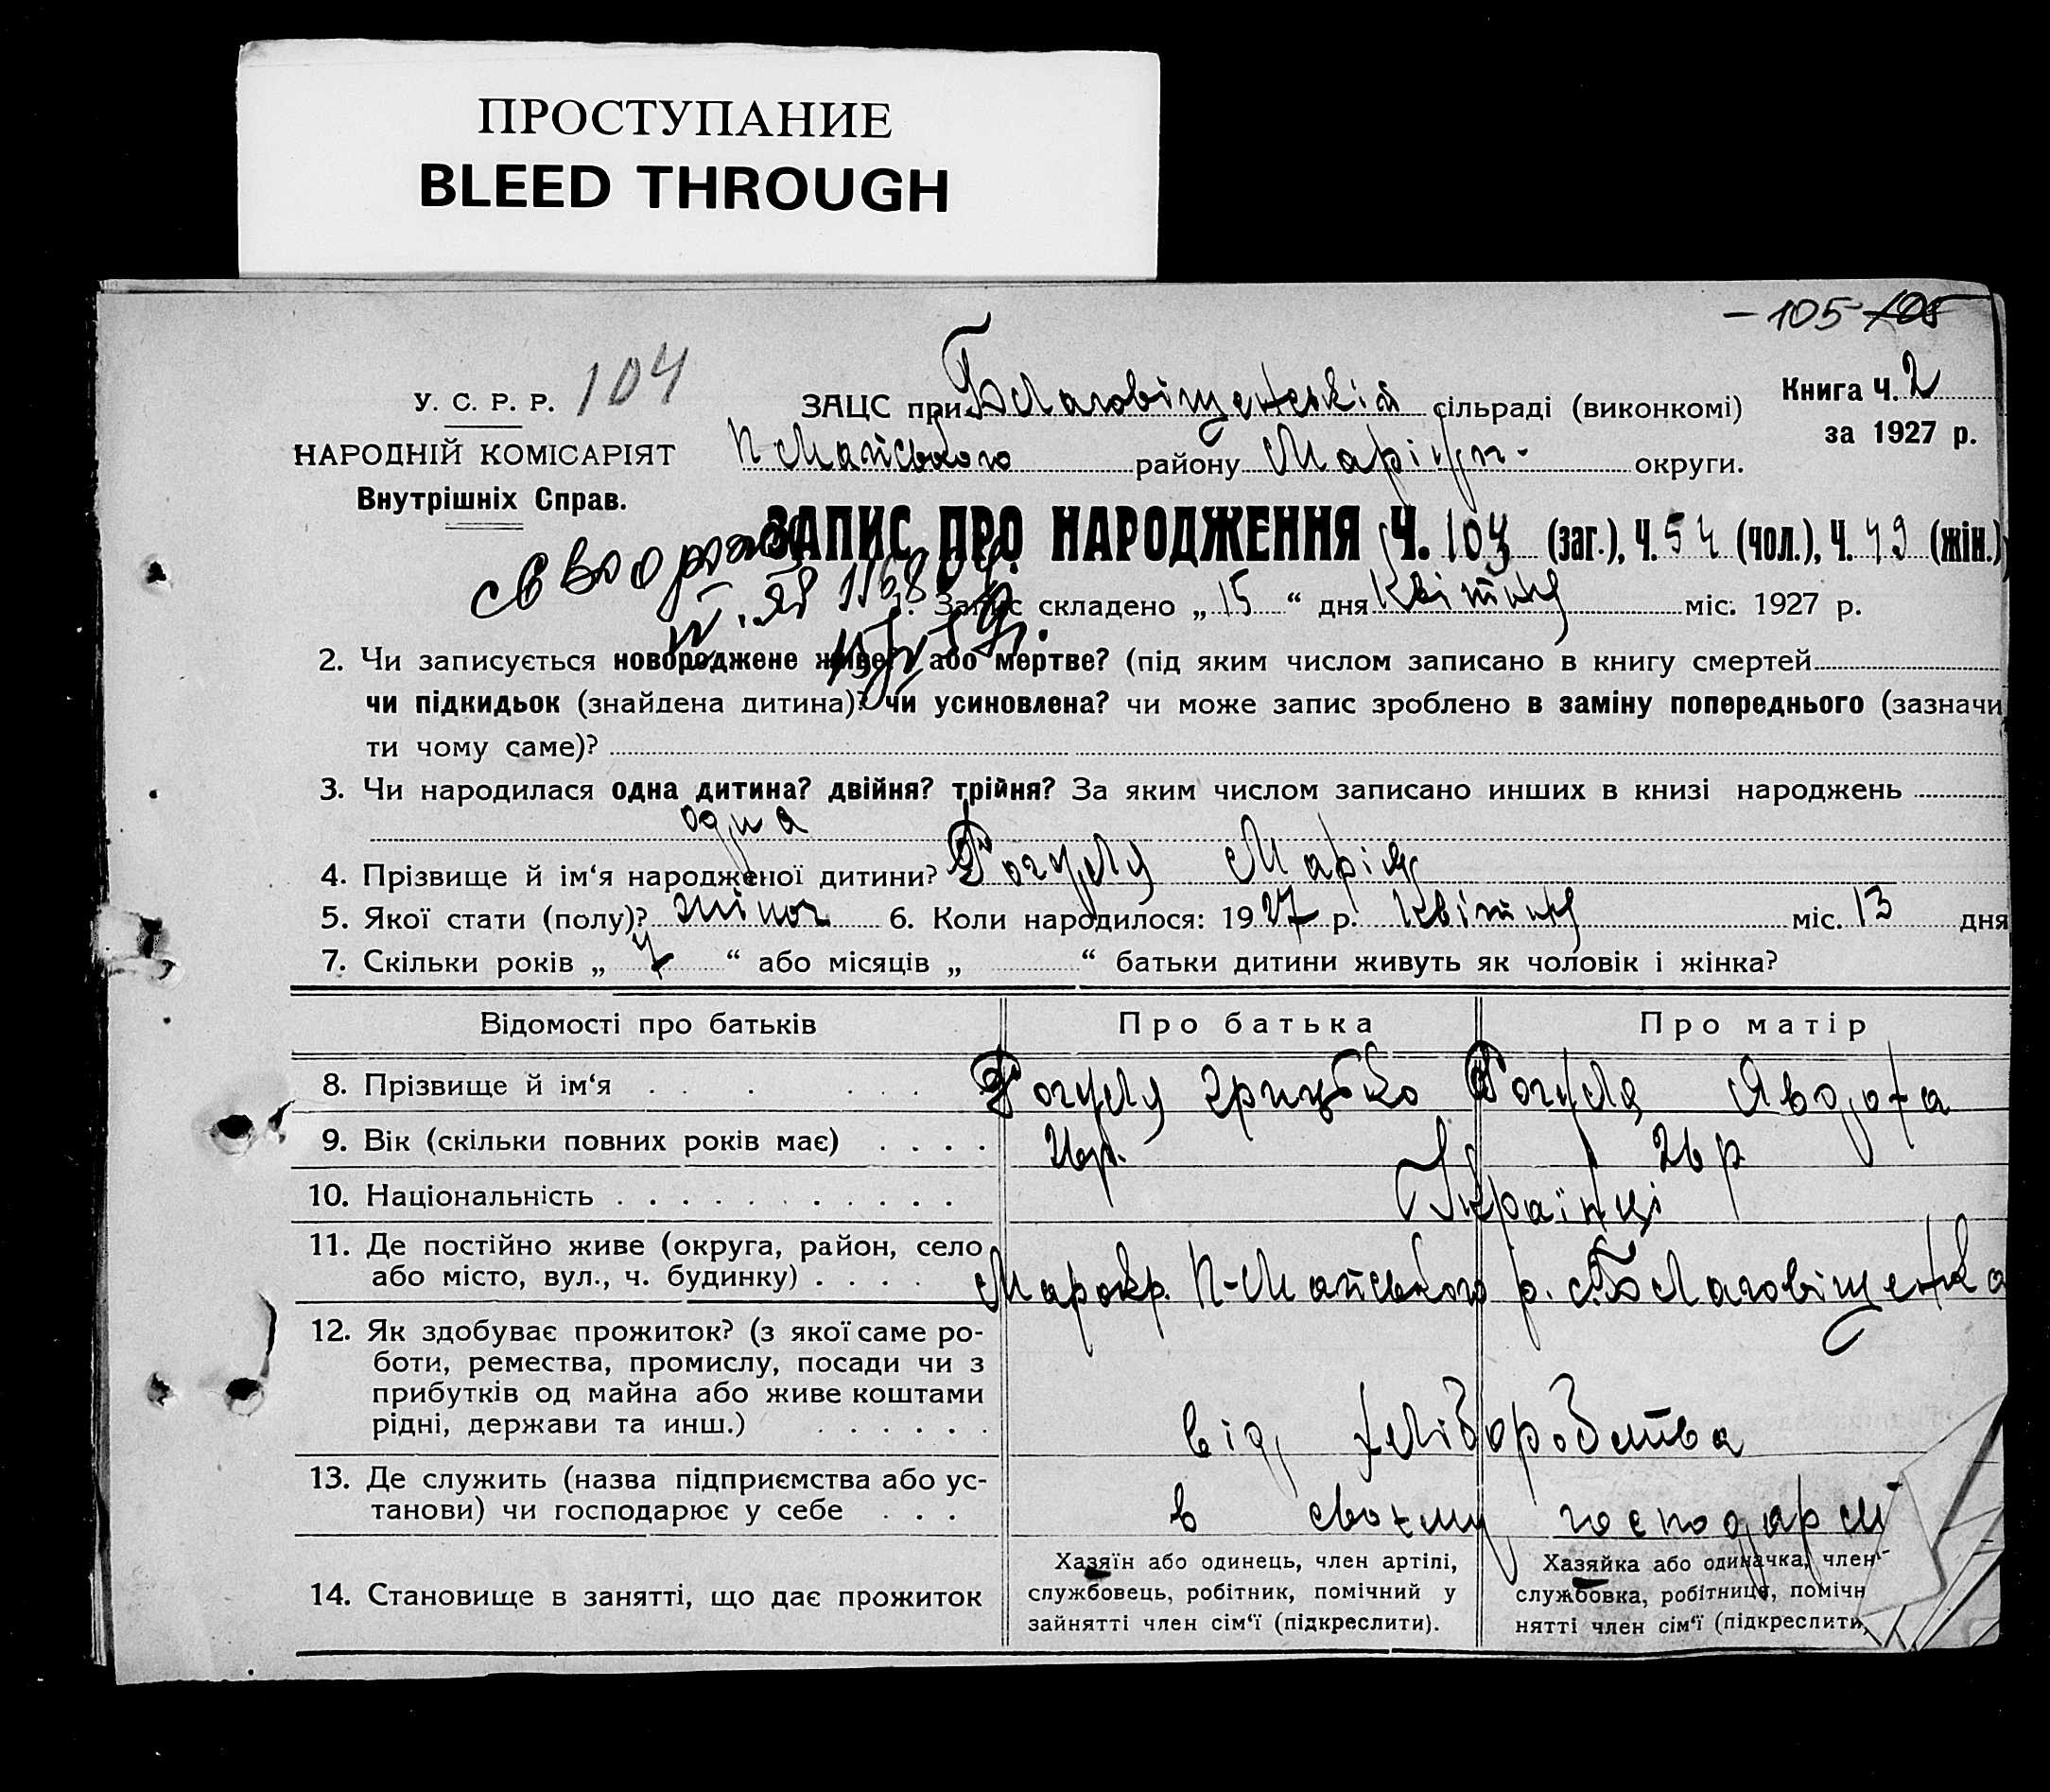 ПРОСТУПАНИЕ
BLEED THROUGH
– 105 – 105
104
У. С. Р. Р.
НАРОДНІЙ КОМІСАРІЯТ
Внутрішніх Справ.
ЗАЦС при Благовіщенській сільраді (виконкомі)
Книга Ч. 2
за 1927 р.
П Майського району Маріюп. округи.
ЗАПИС ПРО НАРОДЖЕННЯ Ч. 103 (заг.), Ч. 54 (чол.), Ч. 49 (жін.)
1. Запис складено „ 15 “ дня Квітня міс. 1927 р.
2. Чи записується новороджене живе? або мертве? (під яким числом записано в книгу смертей
чи підкидьок (знайдена дитина)? чи усиновлена? чи може запис зроблено в заміну попереднього (зазначи
ти чому саме)?
3. Чи народилася одна дитина? двійня? трійня? За яким числом записано инших в книзі народжень
одна
4. Прізвище й ім‘я народженої дитини? Рогуля Марія
5. Якої стати (полу)? жіноч 6. Коли народилося: 1927 р. Квітня міс. 13 дня
7. Скільки років „ “ або місяців „ “ батьки дитини живуть як чоловік і жінка?
Відомості про батьків Про батька Про матір
8. Прізвище й ім‘я Рогуля Грицько Рогуля Явдоха
9. Вік (скільки повних років має) 26р. 26 р
10. Національність Українці
11. Де постійно живе (округа, район, село
або місто, вул., ч. будинку) Марокр. П-Майського р. с. Благовіщенка
12. Як здобуває прожиток? (з якої саме ро-
боти, ремества, промислу, посади чи з
прибутків од майна або живе коштами
рідні, держави та инш.) від хліборобства
13. Де служить (назва підприємства або ус-
танови) чи господарює у себе в своєму господарсті
14. Становище в занятті, що дає прожиток
Хазяїн або одинець, член артілі,
службовець, робітник, помічний у
зайнятті член сім‘ї (підкреслити).
Хазяйка або одиначка, член
службовка, робітниця, помічн
нятті член сім‘ї (підкреслити,